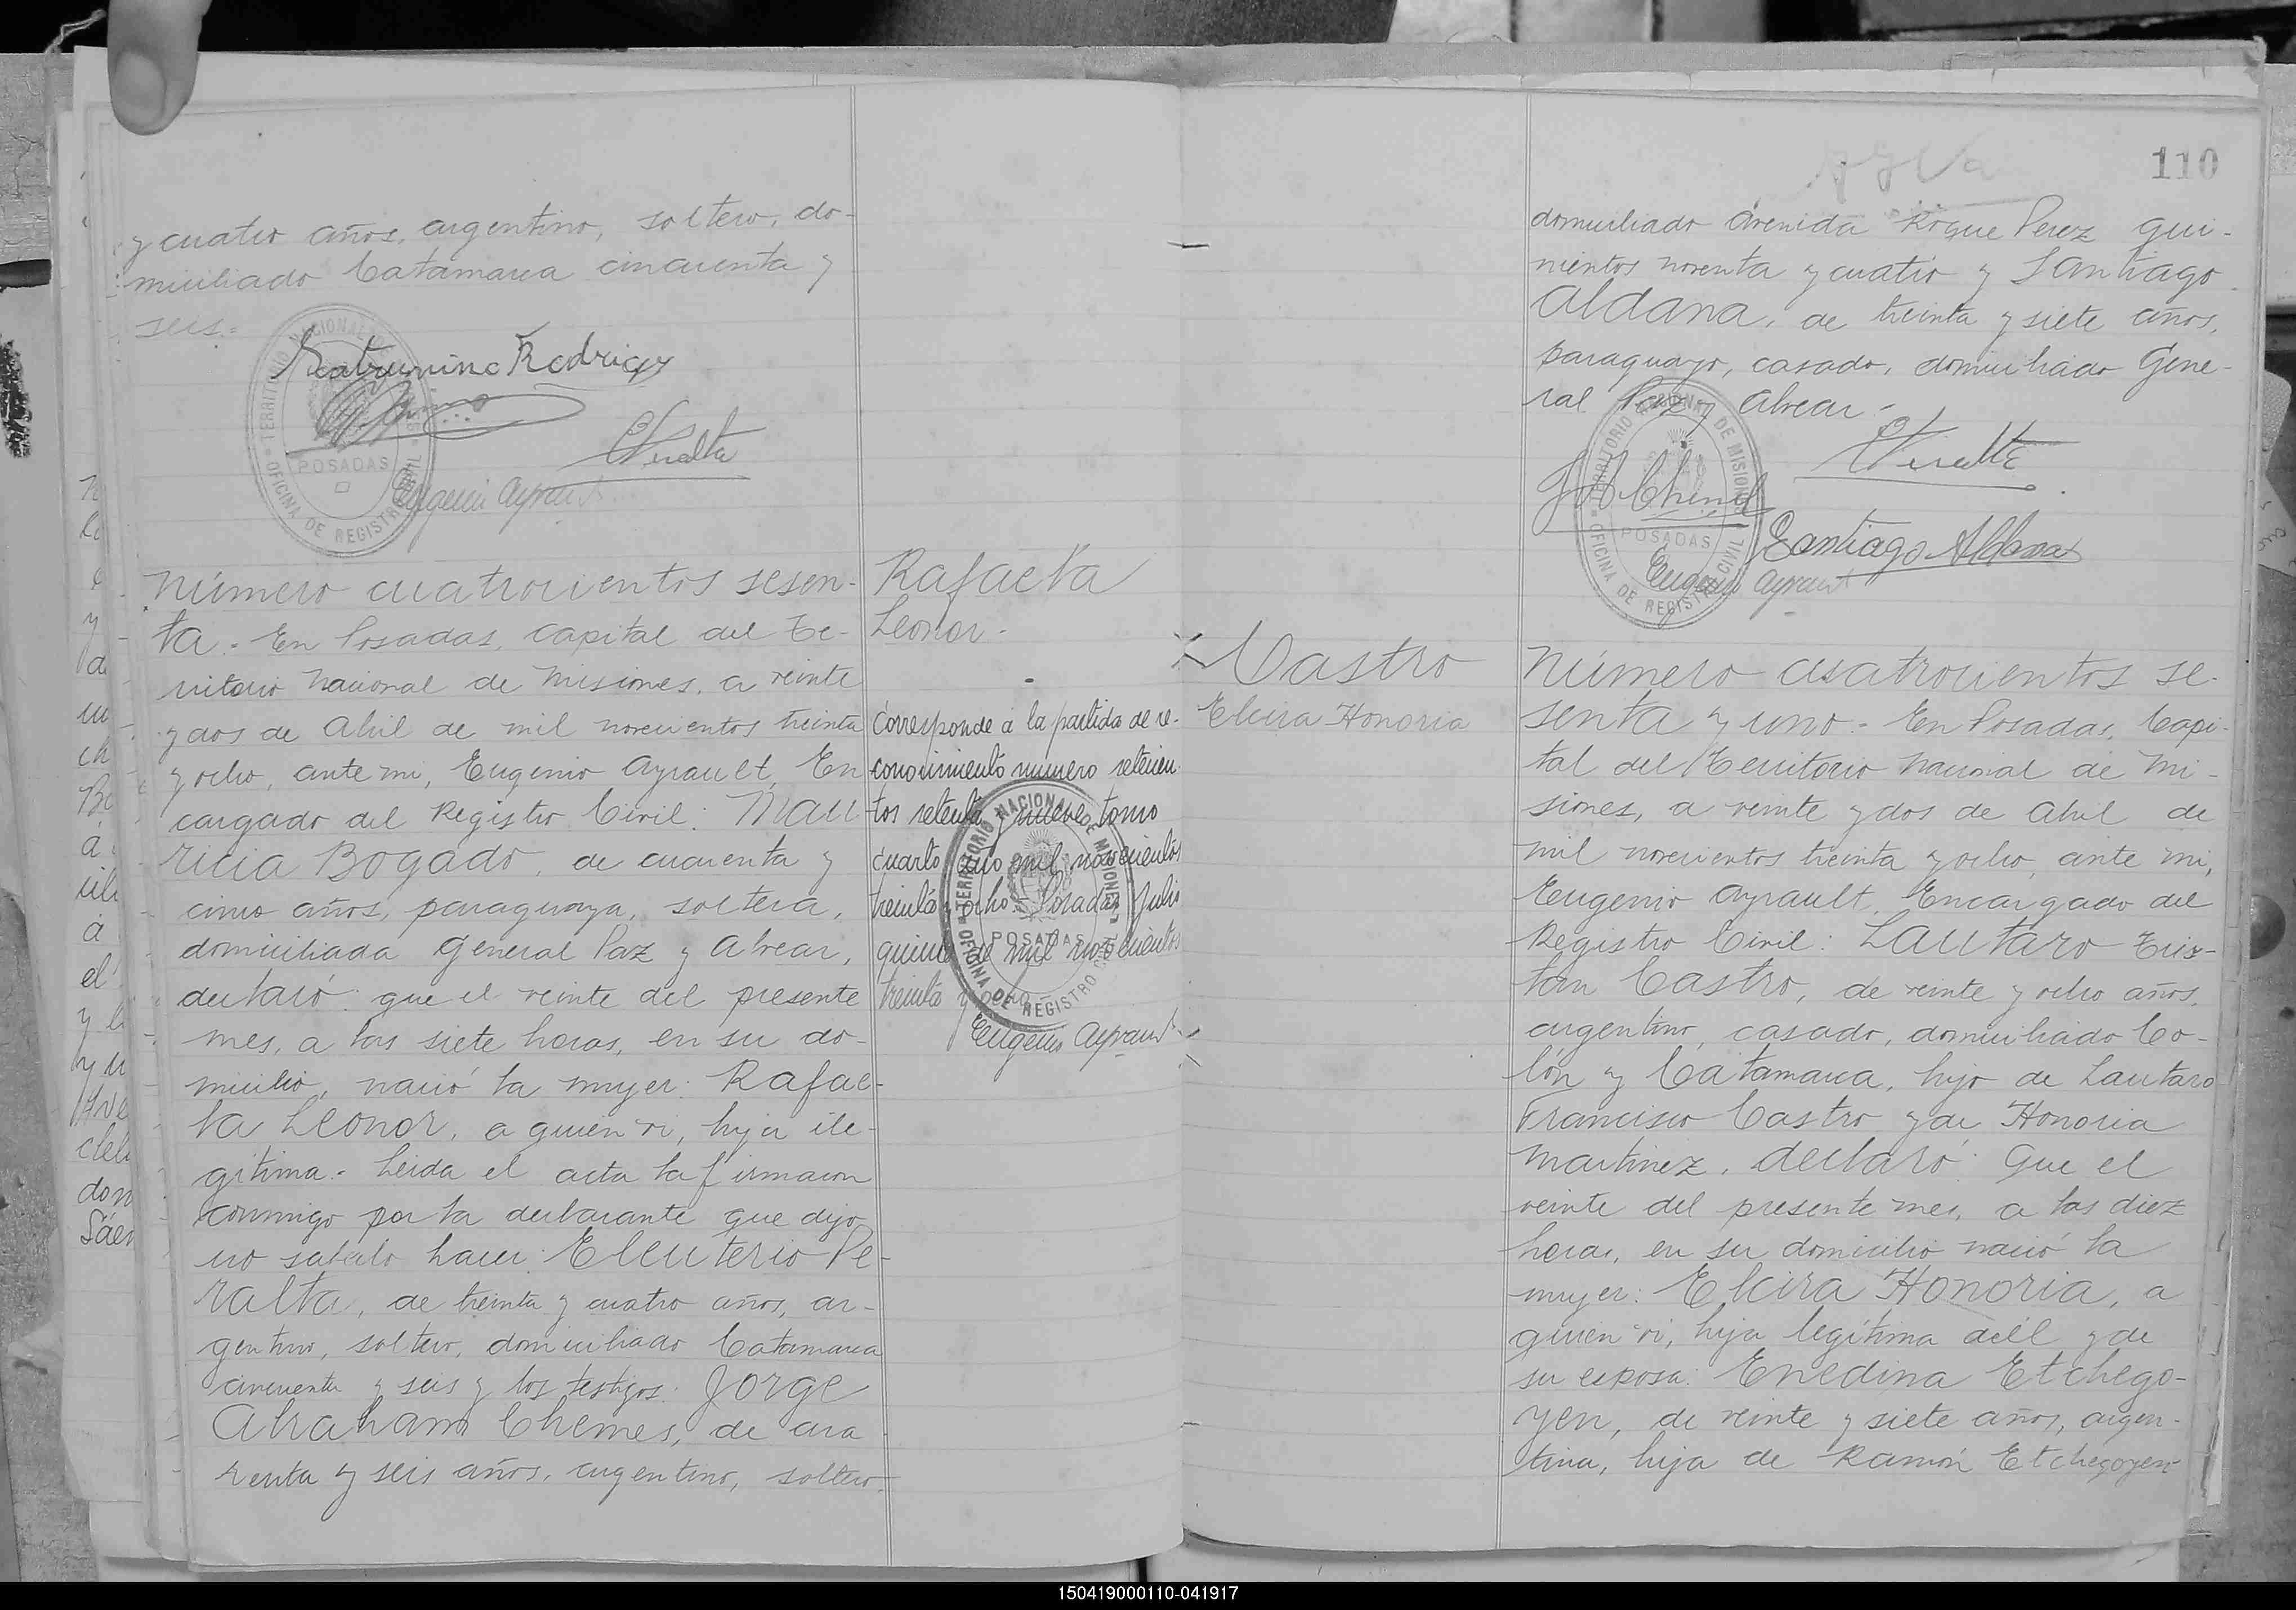 y cuatro años, argentino, soltero, do-
miciliado Catamarca cincuenta y
seis.=
Saturnino Rodriguez
EPeralta
Eugenio Ayrault
TERRITORIO NACIONAL DE MISIONES
POSADAS
OFICINA DE REGISTRO CIVIL
Número cuatrocientos sesen-
ta.- En Posadas, capital del Te-
rritorio Nacional de Misiones, a veinte
y dos de Abril de mil novecientos treinta
y ocho, ante mi, Eugenio Ayrault, En
cargado del Registro Civil: Mau
ricia Bogado, de cuarenta y
cinco años, paraguaya, soltera,
domiciliada General Paz y Alvear,
declaró: que el veinte del presente
mes, a las siete horas, en su do-
micilio, nació la mujer: Rafae-
la Leonor, a quien vi, hija ile-
gítima.- Leida el acta la firmaron
conmigo por la declarante que dijo
no saberlo hacer: Eleuterio Pe-
ralta, de treinta y cuatro años, ar-
gentino, soltero, domiciliado Catamarca
cincuenta y seis y los testigos: Jorge
Abraham Chemes, de cua
renta y seis años, argentino, soltero-
Rafaela
Leonor-
Corresponde á la partida de re-
conocimiento numero setecien
tos setenta y nueve, tomo
cuarto año mil novecientos
treinta y ocho.- Posadas Julio
quince de mil novecientos
treinta y ocho.-
Eugenio Ayrault
TERRITORIO NACIONAL DE MISIONES
POSADAS
OFICINA DE REGISTRO CIVIL
110
domiciliado Avenida Roque Perez qui-
nientos noventa y cuatro y Santiago
Aldana, de treinta y siete años,
paraguayo, casado, domiciliado Gene-
ral Paz y Alvear-
EPeralta
Santiago Aldana
Eugenio Ayrault
TERRITORIO NACIONAL DE MISIONES
POSADAS
OFICINA DE REGISTRO CIVIL
Castro
Elcira Honoria
Número cuatrocientos se-
senta y uno.- En Posadas, Capi-
tal del Territorio Nacional de Mi-
siones, a veinte y dos de Abril de
mil novecientos treinta y ocho, ante mi,
Eugenio Ayrault, Encargado del
Registro Civil: Lautaro Tris-
tán Castro, de veinte y ocho años,
argentino, casado, domiciliado Co-
lón y Catamarca, hijo de Lautaro
Francisco Castro y de Honoria
Martinez, declaró: Que el
veinte del presente mes, a las diez
horas, en su domicilio nació la
mujer: Elcira Honoria, a
quien vi, hija legítima de él y de
su esposa: Enedina Etchego-
yen, de veinte y siete años, argen-
tina, hija de Ramón Etchegoyen
150419000110-041917